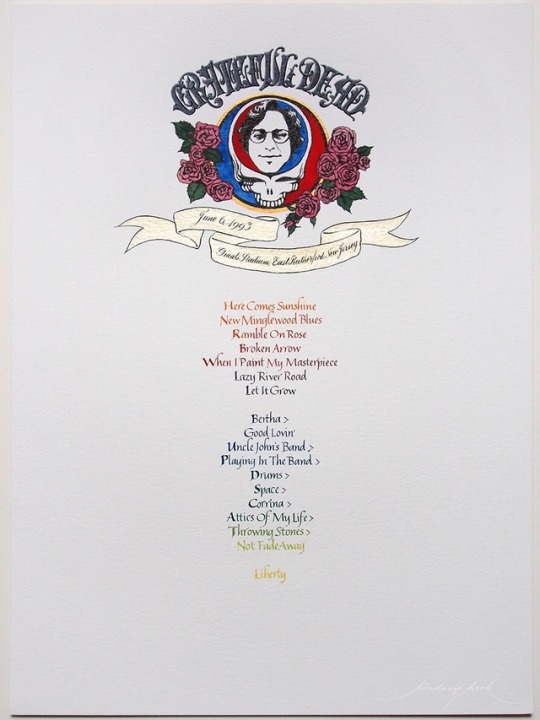 GRATEFUL DEAD
June 6, 1993
Giants Stadium, East Rutherford, New Jersey
Here Comes Sunshine
New Minglewood Blues
Ramble On Rose
Broken Arrow
When I Paint My Masterpiece
Lazy River Road
Let It Grow
Bertha >
Good Lovin'
Uncle John's Band >
Playing In The Band >
Drums >
Space >
Corrina >
Attics Of My Life >
Throwing Stones >
Not Fade Away
Liberty